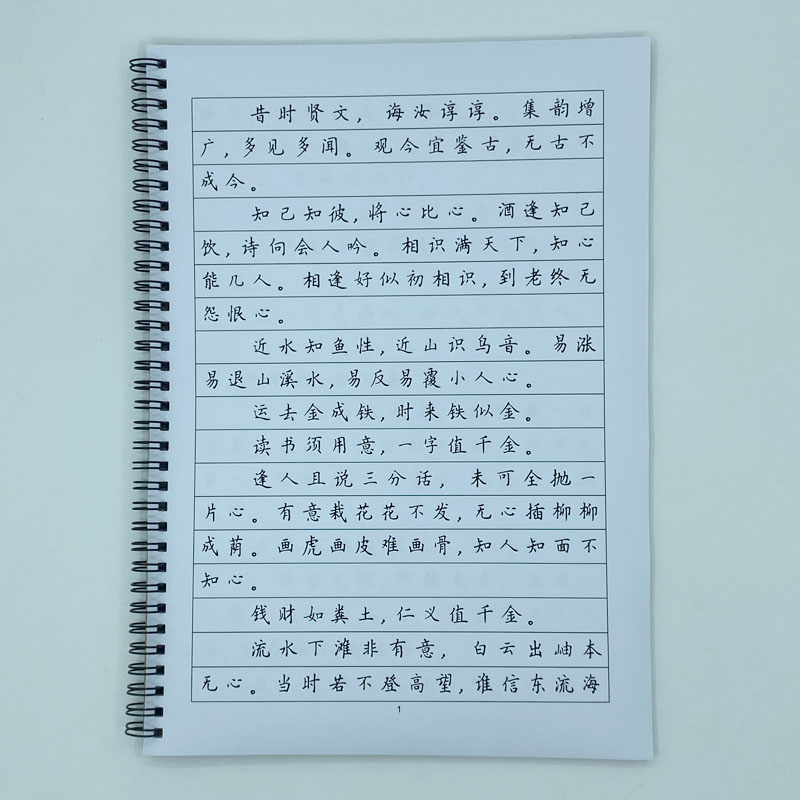 昔时贤文，诲汝谆谆。集韵增
广，多见多闻。观今宜鉴古，无古不
成今。
知己知彼，将心比心。酒逢知己
饮，诗向会人吟。相识满天下，知心
能几人。相逢好似初相识，到老终无
怨恨心。
近水知鱼性，近山识鸟音。易涨
易退山溪水，易反易覆小人心。
运去金成铁，时来铁似金。
读书须用意，一字值千金。
逢人且说三分话，未可全抛一
片心。有意栽花花不发，无心插柳柳
成荫。画虎画皮难画骨，知人知面不
知心。
钱财如粪土，仁义值千金。
流水下滩非有意，白云出岫本
无心。当时若不登高望，谁信东流海
1